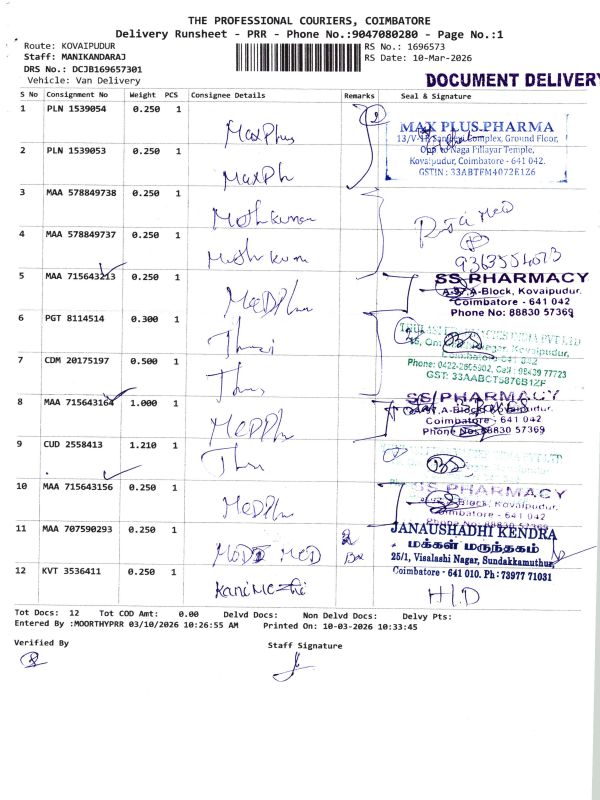 THE PROFESSIONAL COURIERS, COIMBATORE
Delivery Runsheet - PRR - Phone No.:9047080280 - Page No.:1
Route: KOVAIPUDUR
Staff: MANIKANDARAJ
DRS No.: DCJB169657301
Vehicle: Van Delivery
RS No.: 1696573
RS Date: 10-Mar-2026
DOCUMENT DELIVERY
S No Consignment No Weight PCS Consignee Details Remarks Seal & Signature
1 PLN 1539054 0.250 1 MaxPlus
MAX PLUS PHARMA
Complex, Ground Floor,
Opp. to Naga Pillayar Temple,
Kovaipudur, Coimbatore - 641 042.
GSTIN : 33ABTFM4072E1Z6
2 PLN 1539053 0.250 1 MaxPh
3 MAA 578849738 0.250 1 Muthkumar
4 MAA 578849737 0.250 1 Muthkum
9363554073
5 MAA 715643213 0.250 1 MedPlus
SS PHARMACY
A-97, A-Block, Kovaipudur,
Coimbatore - 641 042
Phone No: 88830 57369
6 PGT 8114514 0.300 1
Kovaipudur,
Coimbatore - 641 042
7 CDM 20175197 0.500 1
Phone: 0422-2605902, Cell : 98439 77723
GST: 33AABCT5876B1ZF
8 MAA 715643164 1.000 1 MedPlu
SS PHARMACY
A-97, A-Block, Kovaipudur.
Coimbatore - 641 042
Phone No: 88830 57369
9 CUD 2558413 1.210 1
10 MAA 715643156 0.250 1 MedPlu
SS PHARMACY
A-Block, Kovaipudur,
Coimbatore - 641 042
Phone No: 88830 57369
11 MAA 707590293 0.250 1 MODI MED 2 Box
JANAUSHADHI KENDRA
மக்கள் மருந்தகம்
25/1, Visalashi Nagar, Sundakkamuthur,
Coimbatore - 641 010. Ph : 73977 71031
12 KVT 3536411 0.250 1 Kanimozhi H/D
Tot Docs: 12 Tot COD Amt: 0.00 Delvd Docs: Non Delvd Docs: Delvy Pts:
Entered By :MOORTHYPRR 03/10/2026 10:26:55 AM Printed On: 10-03-2026 10:33:45
Verified By
Staff Signature